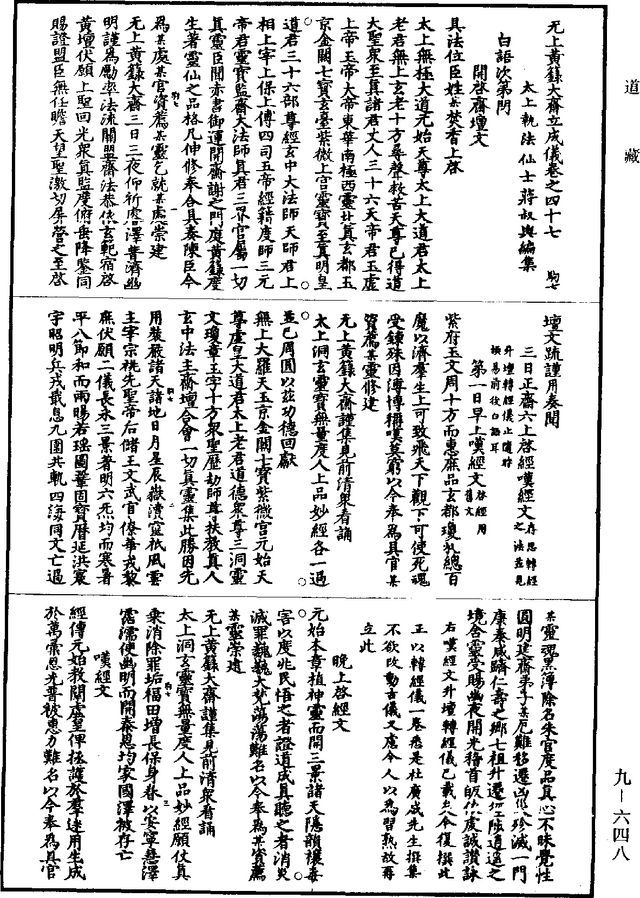 道藏
无上黃籙大齋立成儀卷之四十七 駒七
太上執法仙士蔣叔輿編集
白語次第門
開啓齋壇文
具法位臣姓某焚香上啓
太上無極大道元始天尊太上大道君太上
老君無上玄老十方尋聲救苦天尊已得道
大聖衆至真諸君丈人三十六天帝君玉虛
上帝玉帝大帝東華南極西靈北真玄都玉
京金闕七寶玄臺紫微上宮靈寶至真明皇
道君三十六部尊經玄中大法師天師君上
相上宰上保上傅四司五帝經籍度師三元
帝君靈寶監齋大法師真君三界官屬一切
真靈臣聞赤書御運開齋謝之門庭黃籙度
生著靈仙之品格凡伸修奉合具奏陳臣今
爲某處某官資薦某靈乞就某處崇建
无上黃籙大齋三日三夜仰祈恩澤普濟幽
明謹爲勵率法流關盟齋法恭依玄範宿啓
黃壇伏願上聖回光衆真監度俯垂降鑒同
賜證盟臣無任瞻天望聖激切屏營之至啓
壇文疏謹用奏聞
三日正齋六上啓經嘆經文 存思轉經之法並見
升壇轉經儀止隨時換易前後白語耳
第一日早上嘆經文 啓經用舊文
紫府玉文周十方而惠庶品玄都瓊札總百
魔以濟羣生上可致飛天下觀下可使死魂
受鍊殊因溥博稱嘆莫窮以今奉爲具官某
資薦某靈修建
无上黃籙大齋謹集見前清衆看誦
太上洞玄靈寶無量度人上品妙經各一過
並已周圓以茲功德回獻
無上大羅天玉京金闕七寶紫微宮元始天
尊虛皇大道君太上老君道德衆尊三洞靈
文瓊章玉字十方衆聖歷劫師尊扶教真人
玄中法主齋壇合會一切真靈集此勝因先
用裝嚴諸天諸地日月星辰嶽瀆窪祇風雲
主宰宗祧先聖帝后儲王文武官僚華戎黎
庶伏願二儀長永三景著明六炁均而寒暑
平八節和而雨暘若瑤圖鞏固寶曆延洪寰
宇昭明兵戎戢息九圍共軌四海同文亡過
某靈罪簿除名朱宮度品真心不昧覺性
圓明建齋弟子某厄難移遷凶災殄滅一門
康泰咸躋仁壽之鄉七祖升遷徑陟逍遙之
境含靈受賜幽夜開光稽首皈依虔誠讚詠
右嘆經文升壇轉經儀已載矣今復撰此
正以轉經儀一卷悉是杜廣成先生撰集
不欲改動古儀又慮今人以爲習熟故再
立此
晚上啓經文
元始本章植神靈而開三景諸天隱韻禳毒
害以度兆民悟之者證道成真聽之者消災
滅罪巍巍大梵蕩蕩難名以今奉爲某資薦
某靈崇建
无上黃籙大齋謹集見前清衆看誦
太上洞玄靈寶無量度人上品妙經願仗真
乘消除罪垢福田增長保身春以安寧慈澤
霑濡使幽明而開泰恩均家國澤被存亡
嘆經文
經傳元始教闡虛皇俾拯護於羣迷用生成
於萬彙恩光普被惠力難名以今奉爲具官
九－六四八